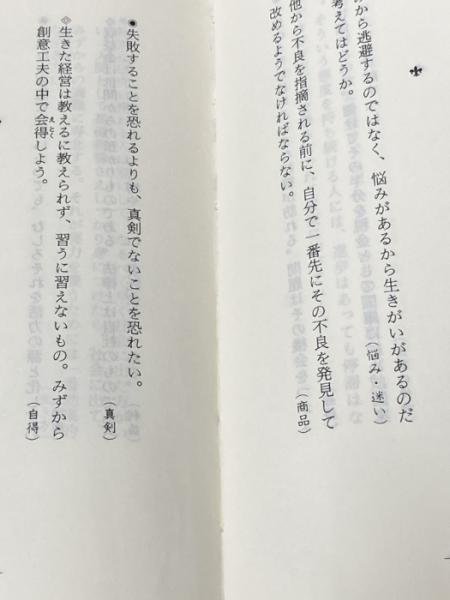 みから逃避するのではなく、悩みがあるから生きがいがあるのだ
考えてはどうか。
(悩み・迷い)
他から不良を指摘される前に、自分で一番先にその不良を発見して
改めるようでなければならない。
(商品)
●失敗することを恐れるよりも、真剣でないことを恐れたい。
(真剣)
生きた経営は教えるに教えられず、習うに習えないもの。みずから
創意工夫の中で会得しよう。
えとく
(自得)